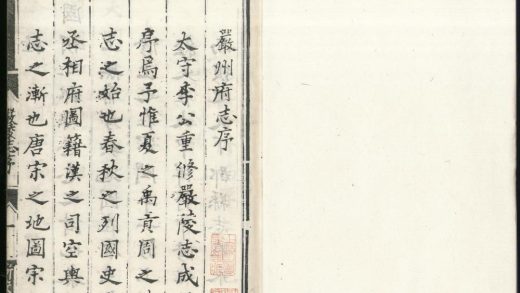 嚴州府志序
太守李公重修嚴陵志成
序焉予惟夏之禹貢周之
志之始也春秋之列國史
丞相府圖籍漢之司空輿
志之漸也唐宋之地圖宋